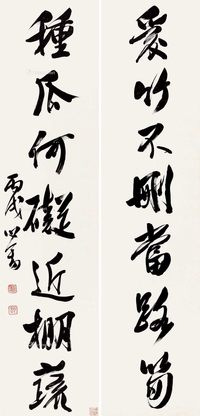 愛竹不刪當路筍
種瓜何礙近棚蔬
丙戌